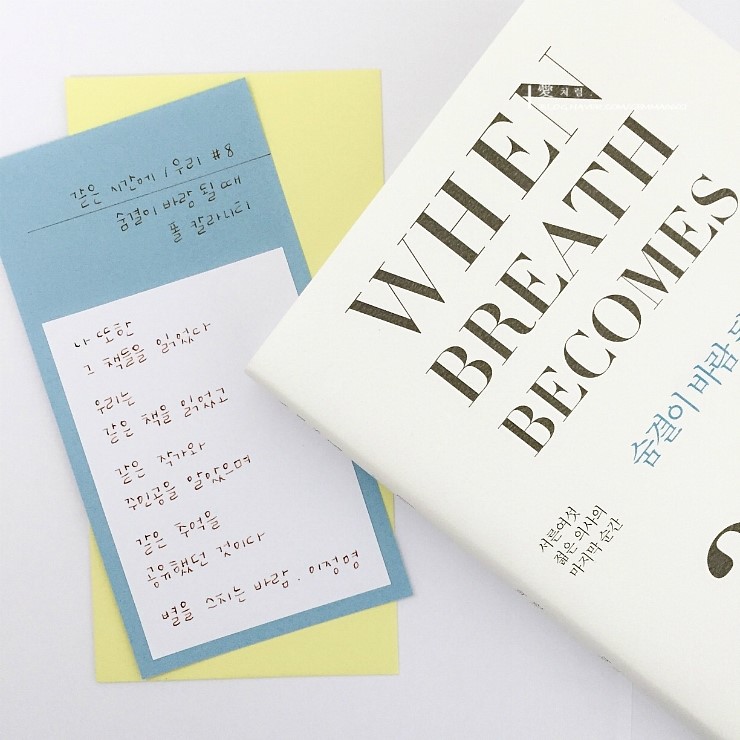 같은 시간에 / 우리 #8
숨결이 바람 될 때
폴 칼라니티
나 또한
그 책들을 읽었다
우리는
같은 책을 읽었고
같은 작가와
주인공을 알았으며
같은 추억을
공유했던 것이다
별을 스치는 바람. 이정명
愛처럼.
WHEN
BREATH
BECOMES
숨결이 바람
서른여섯
젊은 의사의
마지막 순간